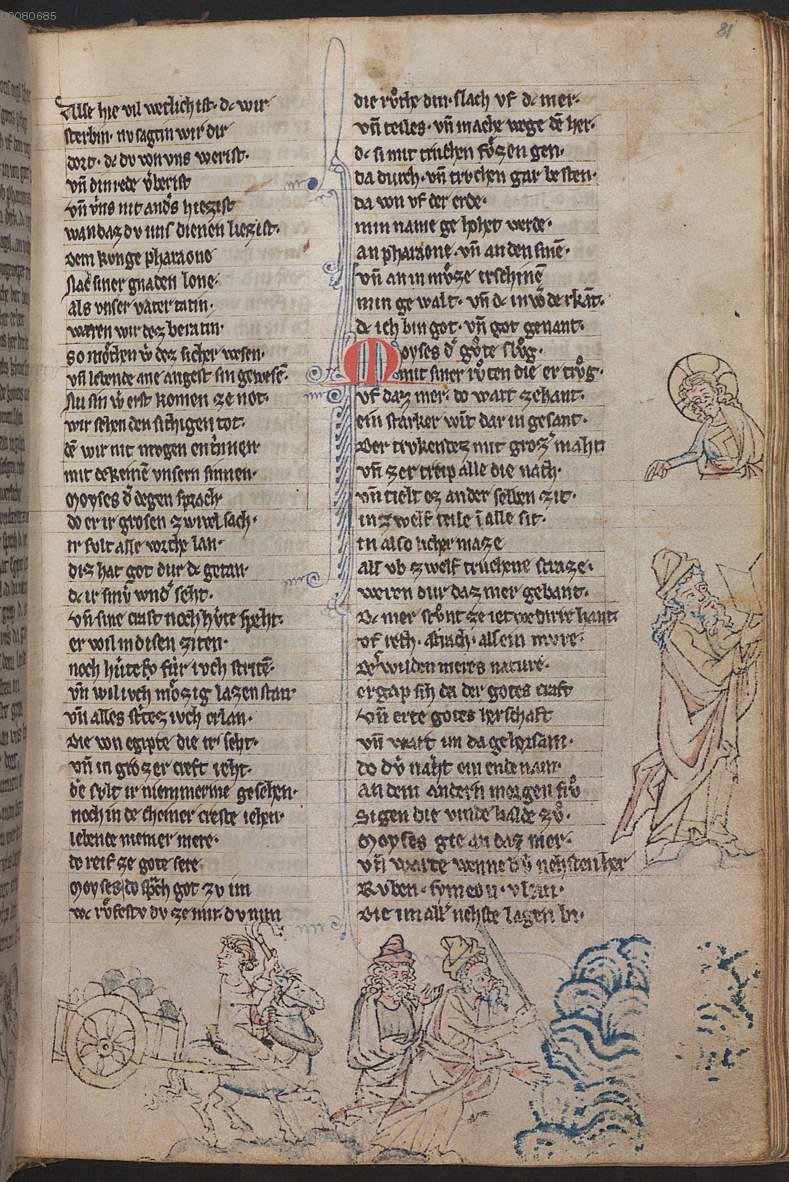 00080685
81
Alse hie vil wetlich ist· dc wir
sterbin· nv sagtin wir dir
dort· dc dv von vns werist·
vñ din rede v̊berist
vñ v̊ns nit and͛s hiezist
wan daz dv uns dienen liezist·
Dem kvnge pharaone
nac siner gnaden lone·
als vnser vater tatin·
waren wir dez beratin·
so mo̊chen w͛ dez sicher wesen·
vñ lebende ane angest sin gewesē·
Nu sin w͛ erst komen ze not·
wir sehen den sichigen tot·
dē wir nit mogen entrinnen
mit dekeinē vnsern sinnen·
Moyses d͛ degen sprach
do er ir grosen zwivel sach·
ir svlt alse vorhte lan·
diz hat got dur dc getan·
dc ir sinv̊ wnd͛ seht·
vñ sine craft noch hv̊te speht·
er wil in disen ziten·
noch hv̊te fv̊r ivch stritē·
vñ wil ivch mv̊zig lazen stan
vñ alles strites ivch erlan·
Die von egipte die ir seht·
vñ in grozer creft ieht·
die svlt ir niemmerme gesehen·
noch in de cheiner creste iehen·
lebende niemer mere·
do reif ze gote sere
Moyses do sp̄ch got zv im
wc rv̊festv dv ze mir· dv nim
die rv̊te din· slach vf dc mer·
vñ teiles· vñ mache wege dē her·
dc si mit truchen fv̊zen gen·
da durch· vñ trvchen gar besten·
da von vf der erde·
min name ge hohet werde·
an pharaone· vñ an den sinē·
vñ an in mv̊ze erschinē
min gewalt· vñ dc in w͛de erkāt·
dc ich bin got· vñ got genant·
Moyses d͛ gv̊te slv̊g·
mit siner rv̊ten die er trv̊g·
vf daz mer· do wart zehant·
ein starker wīt dar in gesant·
Der trvkendez mit groz͛ maht
vñ zer treip alle die nach·
vñ tielt ez an der selben zit·
in zwelf teile ī alle sit·
in also licher maze
als ob zwelf truchene straze·
weren dur daz mer gebant·
Dc mer stv̊nt ze ietwedirre hant
vf reht· alsach· allein mvre·
Der wilden meres nature·
ergap sih da der gotes craft
vñ erte gotes herschaft
vñ wart im da gehorsam·
do dv̊ naht ein ende nam·
An dem andern morgen frv̊
Sigen die vinde balde zv̊·
Moyses gie an daz mer·
vñ warte wenne dv̊ nehsten her
Rvben· symeon· vn̄
Die im all͛ nehste lagen bi·